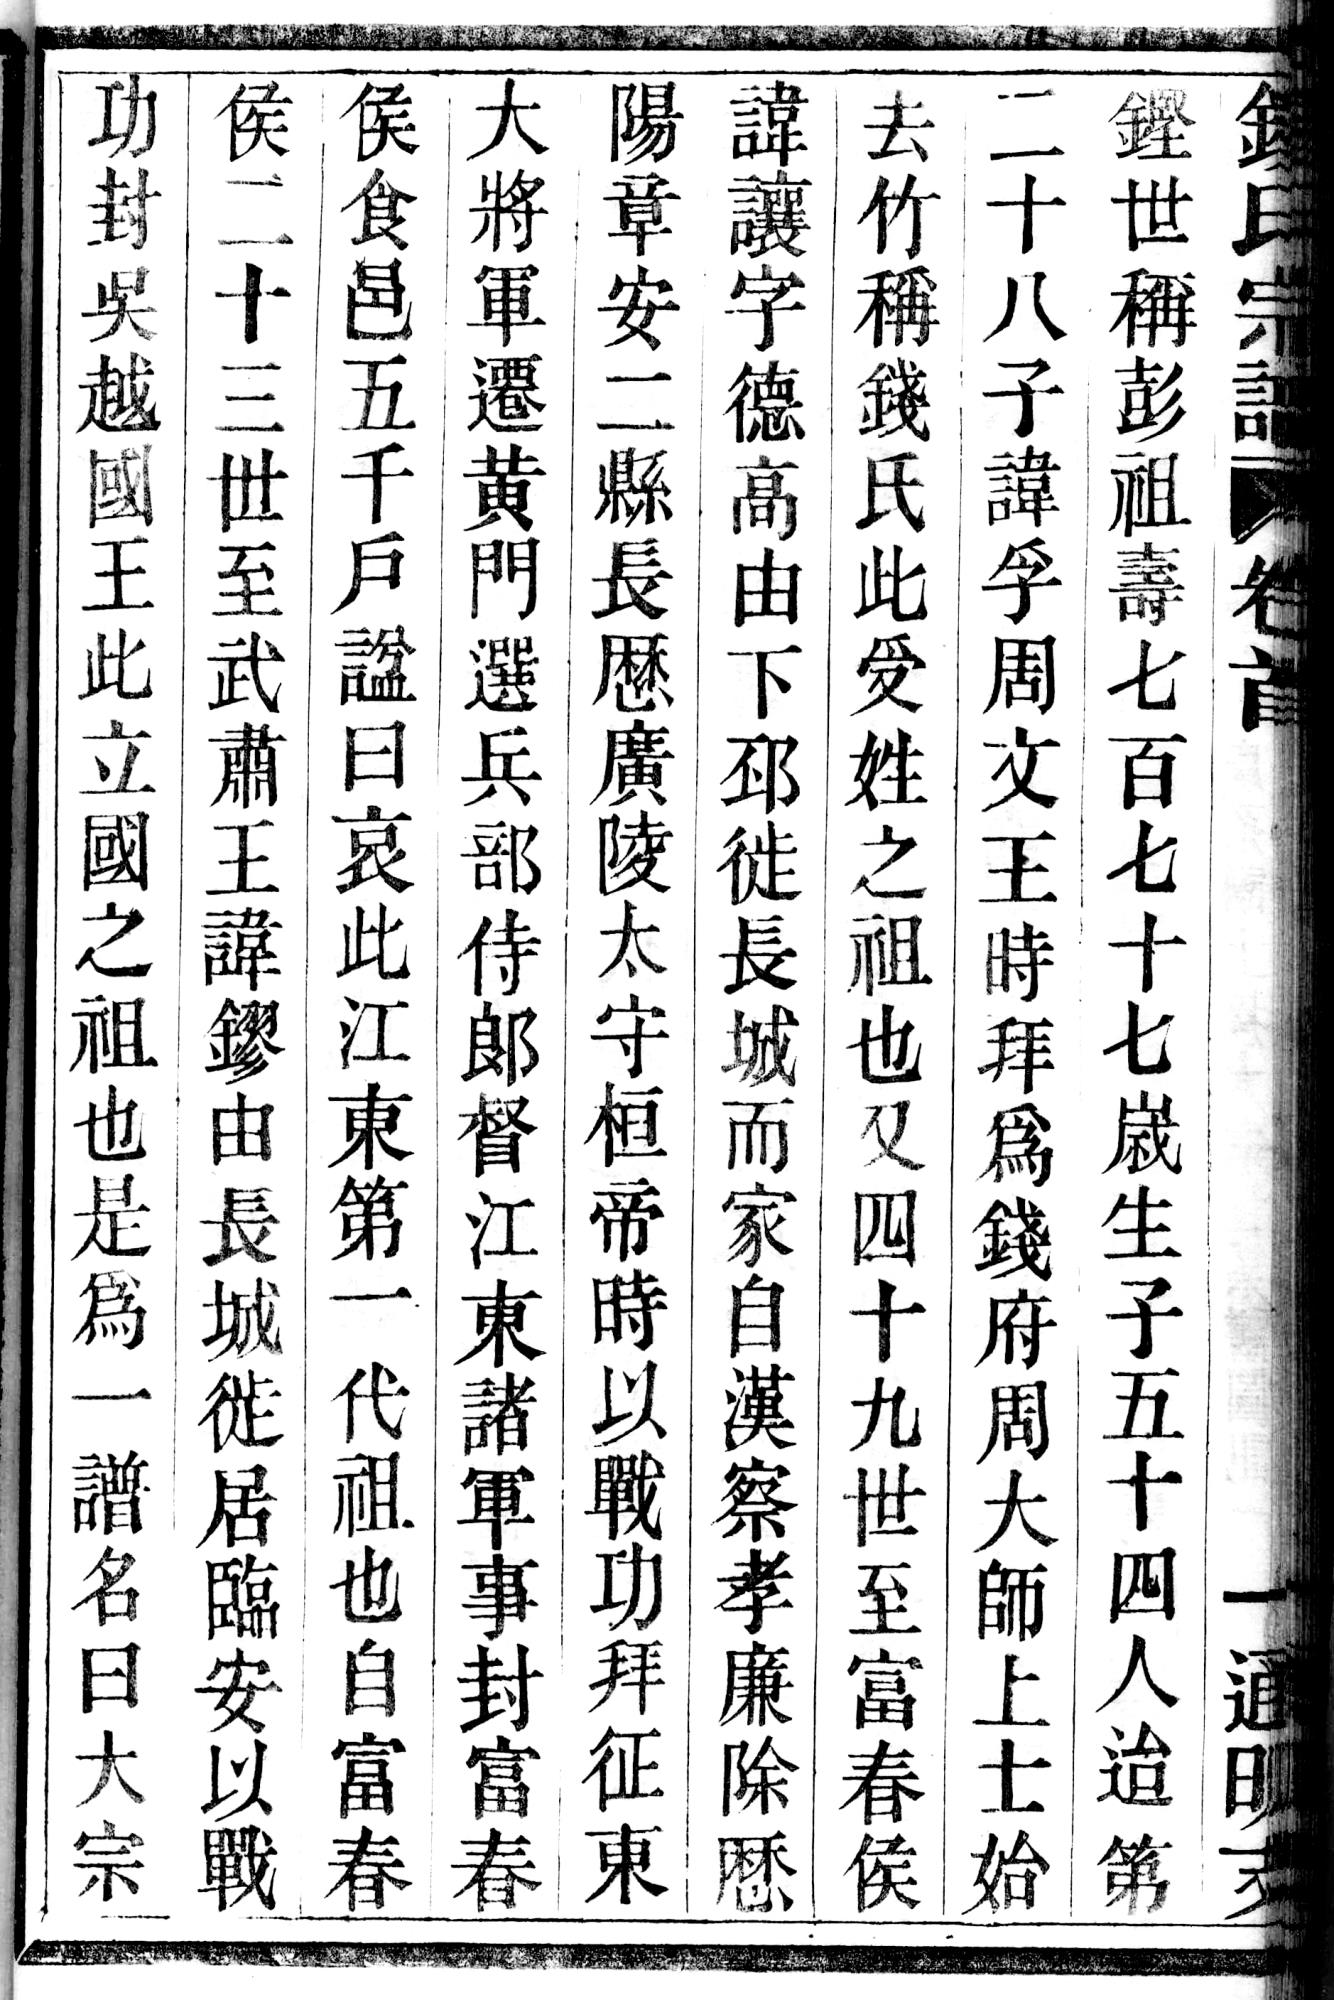 錢氏宗譜 卷首 一 通明
鏗世稱彭祖壽七百七十七歲生子五十四人迨第
二十八子諱孚周文王時拜爲錢府周大師上士始
去竹稱錢氏此受姓之祖也又四十九世至富春侯
諱讓字德高由下邳徙長城而家自漢察孝廉除歷
陽章安二縣長歷廣陵太守桓帝時以戰功拜征東
大將軍遷黄門選兵部侍郎督江東諸軍事封富春
侯食邑五千戶諡曰哀此江東第一代祖也自富春
侯二十三世至武肅王諱鏐由長城徙居臨安以戰
功封吳越國王此立國之祖也是爲一譜名曰大宗